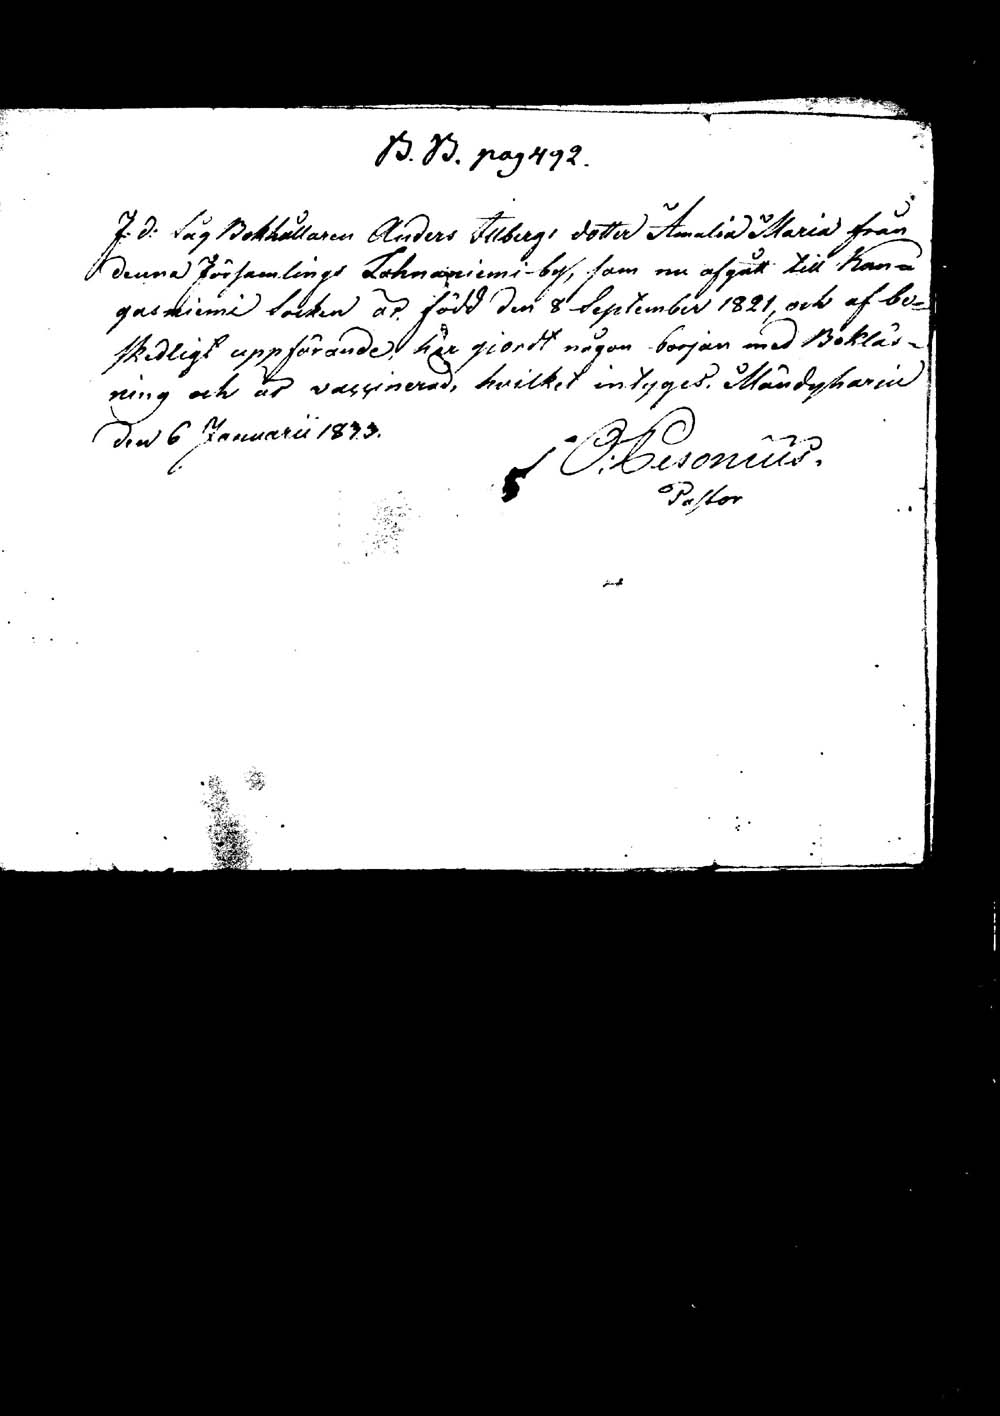 B. B. pag 492.
F. d. Såg Bokhållaren Anders Illbergs dotter Amalia Maria från
denna Församlings Lahnaniemi-by, som nu afgått till Kan-
gasniemi Socken är född den 8 September 1821, och af be-
skedligt uppförande, här gjordt någon början med Bokläs-
ning och är vaccinerad, hvilket intyges. Mändyharju
den 6 Januarii 1833.
Pastor